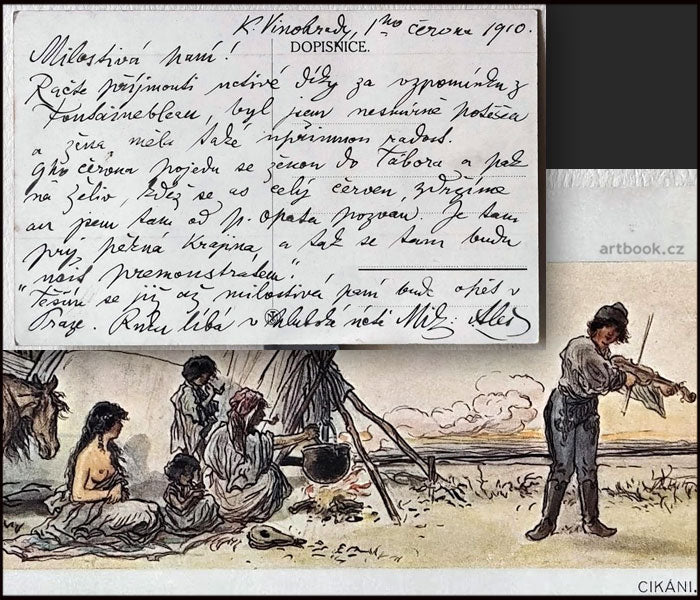 K. Vinohrady, 1ho června 1910.
DOPISNICE.
Milostivá paní!
Račte přijmouti uctivé díky za vzpomínku z
Fontainebleau, byl jsem nesmírně potěšen
a žena měla také upřímnou radost.
9ho června pojedu se ženou do Tábora a pak
na Želiv, kdež se as celý červen zdržíme
an jsem tam od p. opata pozván. Je tam
prý pěkná krajina a tak se tam budu
"
premonstrátem".
Těším se již až milostivá paní bude opět v
Praze. Ruku líbá v hluboké úctě Mik. Aleš
artbook.cz
CIKÁNI.